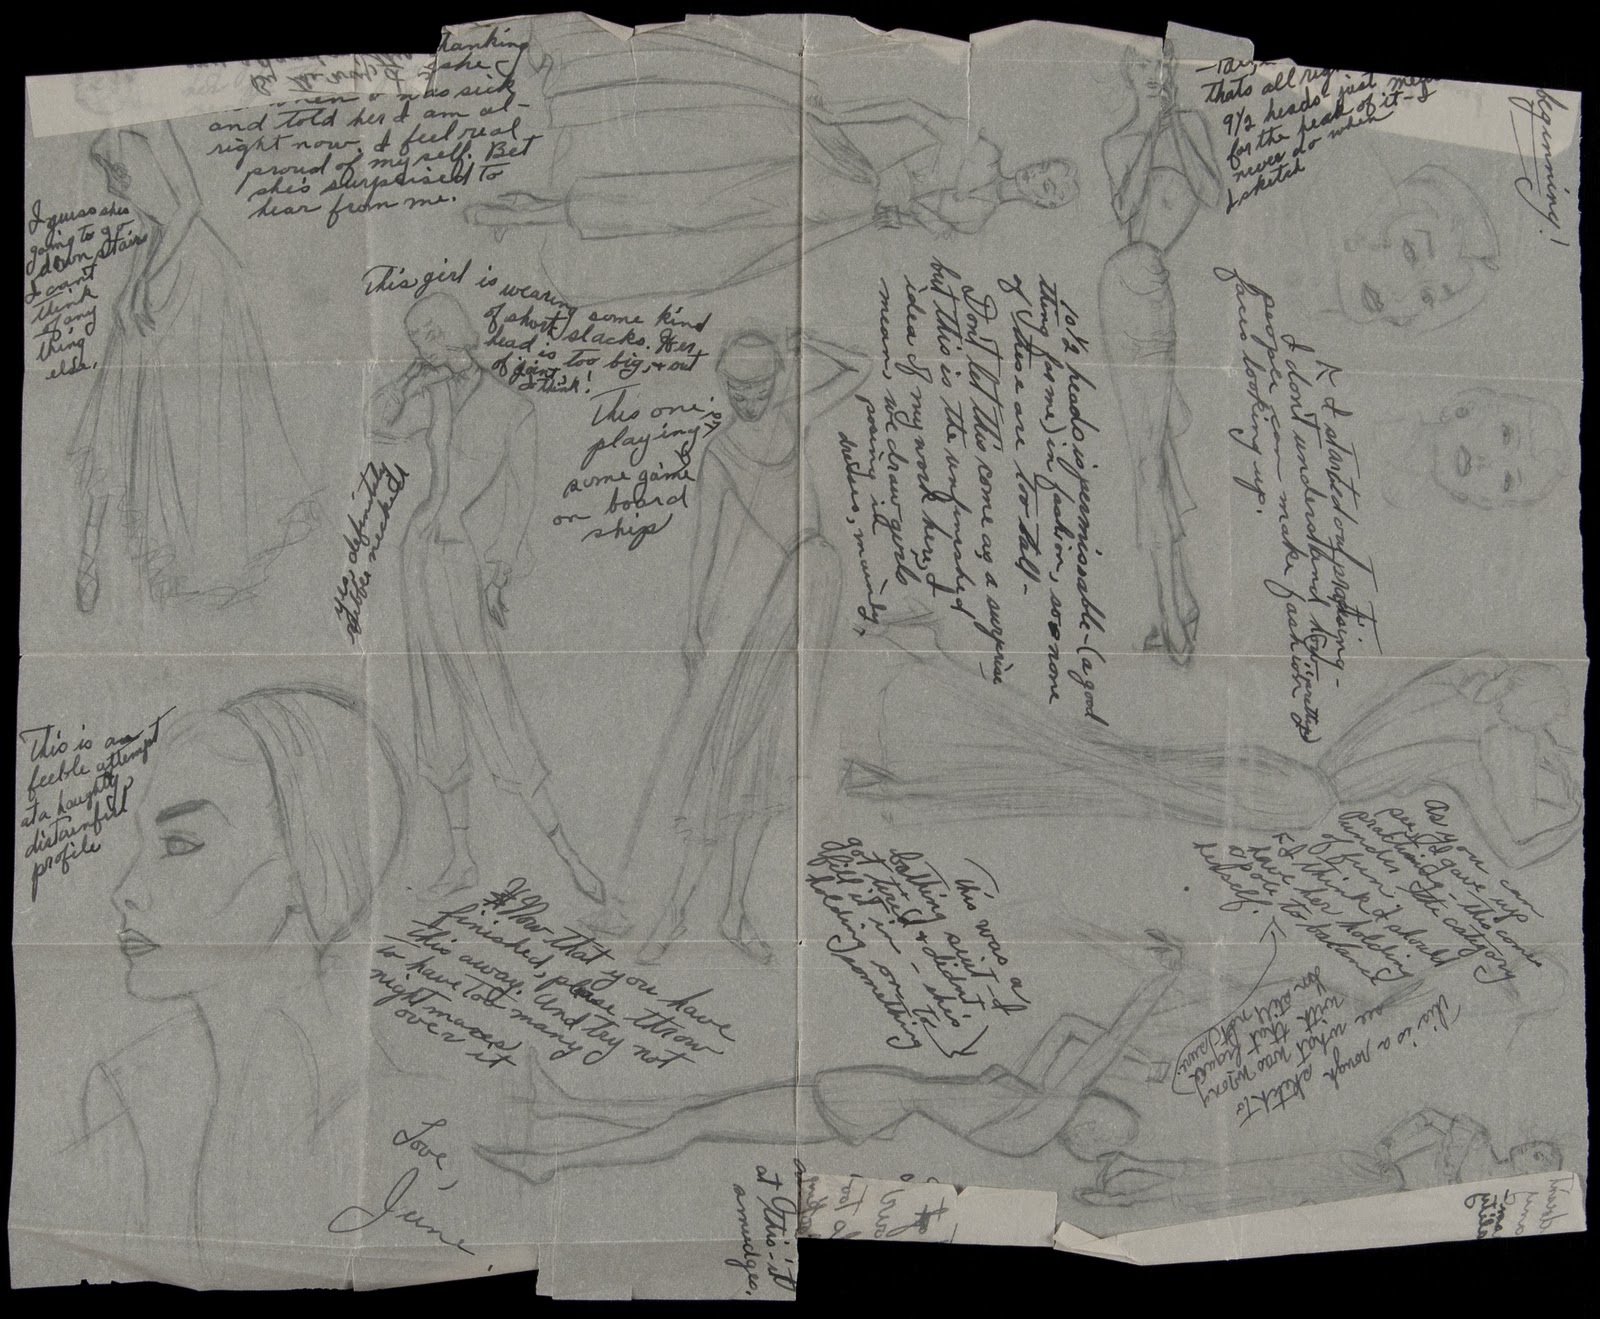 thanking
she
when I was sick
and told her I am al-
right now. I feel real
proud of my self. Bet
she's surprised to
hear from me.
I guess shes
going to go
down stairs
I can't
think
of any
thing
else.
This girl is wearing some kind
of short slacks. Her
head is too big, + out
of joint,
I think!
This one is
playing
some game
on board
ship
She's definitely
rubber necked!
This is a
feeble attempt
at a haughty,
distainful
profile
Now that you have
finished, please throw
this away. And try not
to have too many
nightmares
over it
Love,
June
thats all right
9½ heads just
for the peak of it - I
never do when
I sketch
beginning!
10½ heads is permissable - (a good
thing for me) in fashion, so none
of these are too tall -
Don't let this come as a surprise
but this is the unfinished
idea of my work here, I
mean, we draw girls
posing in
dresses, mainly,
I started out practising -
I don't understand how
people can make fashion "pretty"
faces looking up.
As you can
see I gave up
practising - this comes
under the category
of fun.
I think I should
have her holding
a pole to balance
herself.
This is a rough sketch to
see what was wrong
with that figure
This was a
bathing suit - I
got tired & didn't
fill it in - she's
holding on to
something
at this - it
smudges.